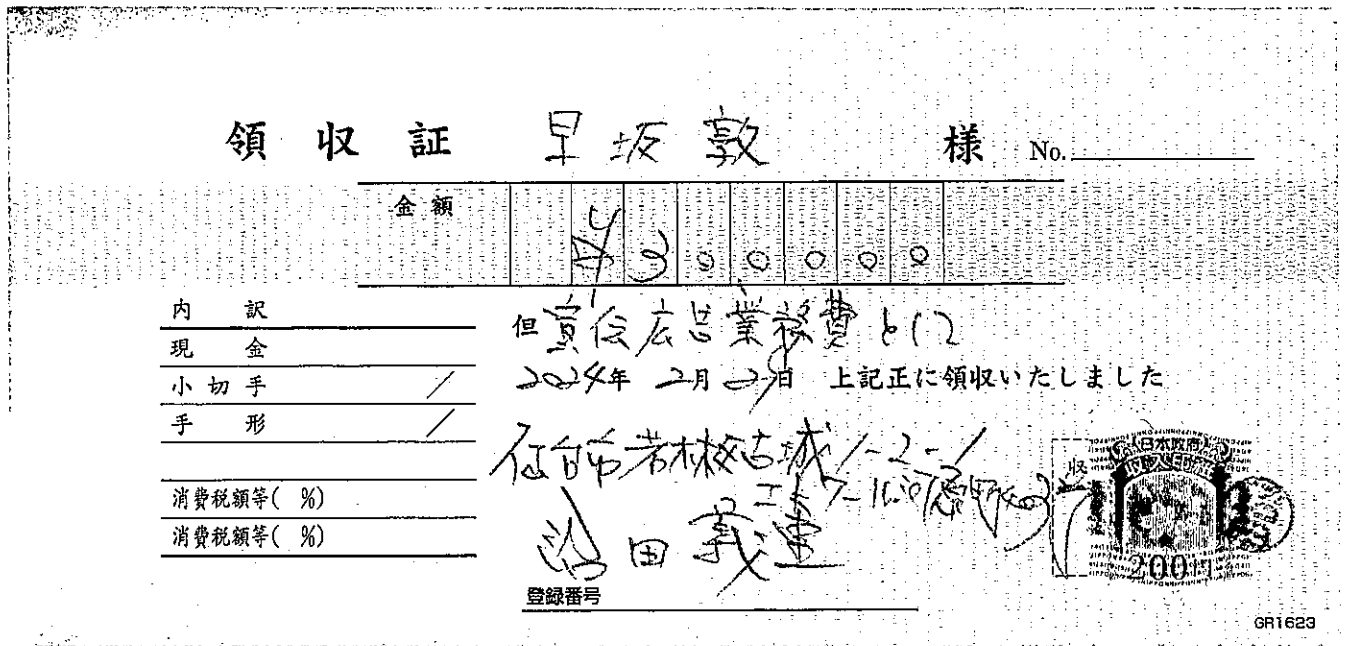 領収証 早坂敦 様 No.
金額 ¥300000
内訳
現金
小切手 /
手形 /
消費税額等( %)
消費税額等( %)
但 宣伝広告業務費として
2024年 2月 日 上記正に領収いたしました
仙台市若林区古城1-2-1
田義
登録番号
収
日本政府
収入印紙
200円
GR1623